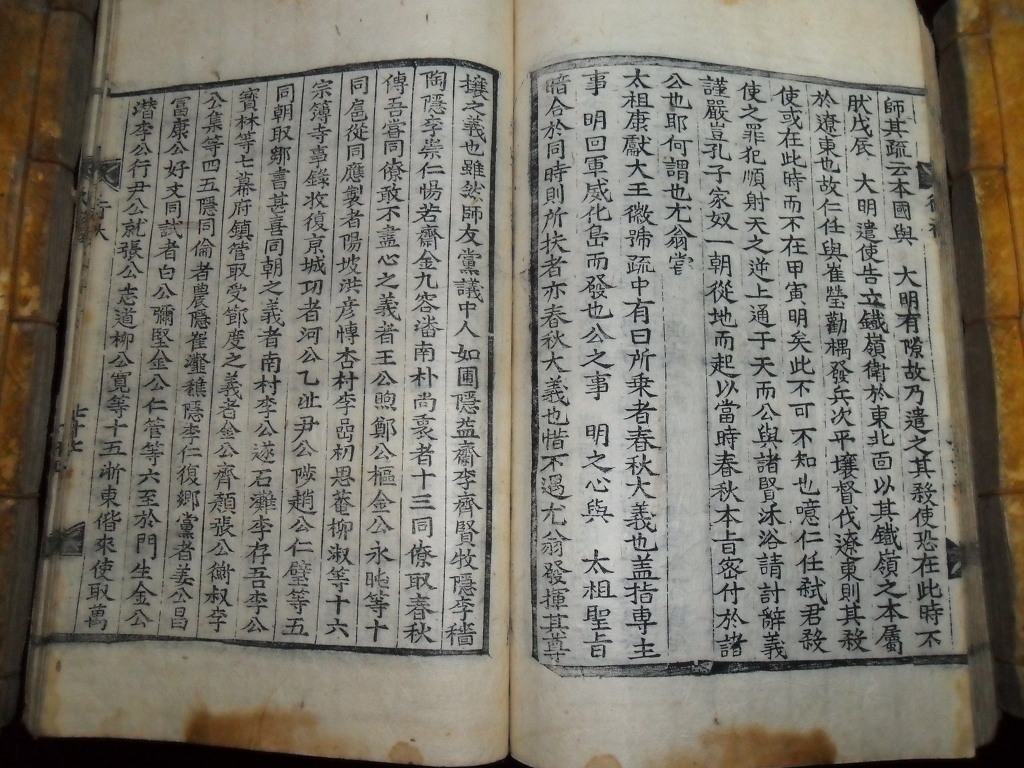 師其疏云本國與 大明有隙故乃遣之其殺使恐在此時不
然戊辰 大明遣使告立鐵嶺衛於東北面以其鐵嶺之本屬
於遼東也故仁任與崔瑩勸禑發兵次平壤督伐遼東則其殺
使或在此時而不在甲寅明矣此不可不知也噫仁任弑君殺
使之罪犯順射天之逆上通于天而公與諸賢沐浴請討辭義
謹嚴豈孔子家奴一朝從地而起以當時春秋本旨密付於諸
公也耶何謂也尤翁嘗
太祖康獻大王徽號疏中有曰所乗者春秋大義也盖指専主
事 明回軍威化島而發也公之事 明之心與 太祖聖旨
暗合於同時則所扶者亦春秋大義也惜不遇尤翁發揮其尊
攘之義也雖然師友黨議中人如圃隱益齋李齊賢牧隱李穡
陶隱李崇仁惕若齋金九容潘南朴尚衷者十三同僚取春秋
傳吾嘗同僚敢不盡心之義者王公煦鄭公樞金公永暾等十
同扈從同應製者陽坡洪彦博杏村李嵒初恩菴柳淑等十六
宗簿寺事錄收復京城功者河公乙沚尹公陟趙公仁璧等五
同朝取鄒書甚喜同朝之義者南村李公遂石灘李存吾李公
寳林等七幕府鎮管取受節度之義者金公齊顏張公衡叔李
公集等四五隱同倫者農隱崔瀣樵隱李仁復鄉黨者姜公昌
冨康公好文同試者白公彌堅金公仁管等六至於門生金公
潛李公行尹公就張公志道柳公寛等十五浙東偕來使取萬